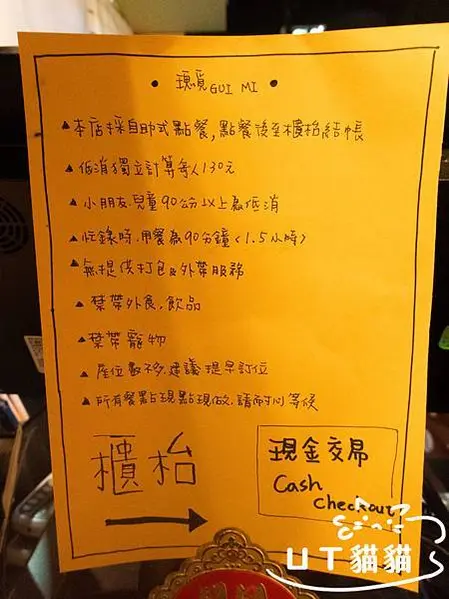 • 瑰覓 GUI MI •
▲本店採自助式點餐,點餐後至櫃枱結帳
▲低消獨立計算每人130元
▲小朋友.兒童90公分以上為低消
▲忙錄時.用餐為90分鐘(1.5小時)
▲無提供打包&外帶服務
▲禁帶外食.飲品
▲禁帶寵物
▲座位數不多.建議提早訂位
▲所有餐點現點現做.請耐心等候
櫃枱
現金交易
Cash
checkout
UT貓貓